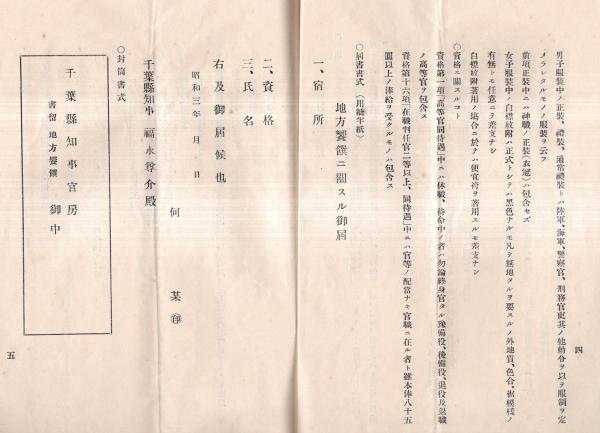 男子服裝中ノ正裝、禮裝、通常禮裝トハ陸軍、海軍、警察官、刑務官吏其ノ他勅令ヲ以テ服制ヲ定
メラレタルモノノ服裝ヲ云フ
前項正裝中ニハ神職ノ正裝(衣冠)ハ包含セズ
女子服裝中ノ白襟紋附ハ正式トシテハ黑色ナルモ凡テ無地タルヲ要スルノ外地質、色合、裾模樣ノ
有無トモ任意ニテ差支ナシ
白襟紋附著用ノ場合ニ於テハ便宜袴ヲ著用スルモ差支ナシ
〇資格ニ關スルコト
資格第一項「高等官同待遇」中ニハ休職、待命中ノ者ハ勿論終身官タル豫備役、後備役、退役及退職
ノ高等官ヲ包含ス
資格第十六項「在職判任官二等以上、同待遇」中ニハ官等ノ配當ナキ官職ニ在ル者ト雖本俸八十五
圓以上ノ俸給ヲ受クルモノハ包含ス
〇屆書書式(用紙半紙)
地方饗饌ニ關スル御屆
一、宿所
二、資格
三、氏名
右及御屆候也
昭和三年 月 日
何 某㊞
千葉縣知事 福永尊介殿
〇封筒書式
千葉縣知事官房 御中
書留 地方饗饌
四
五